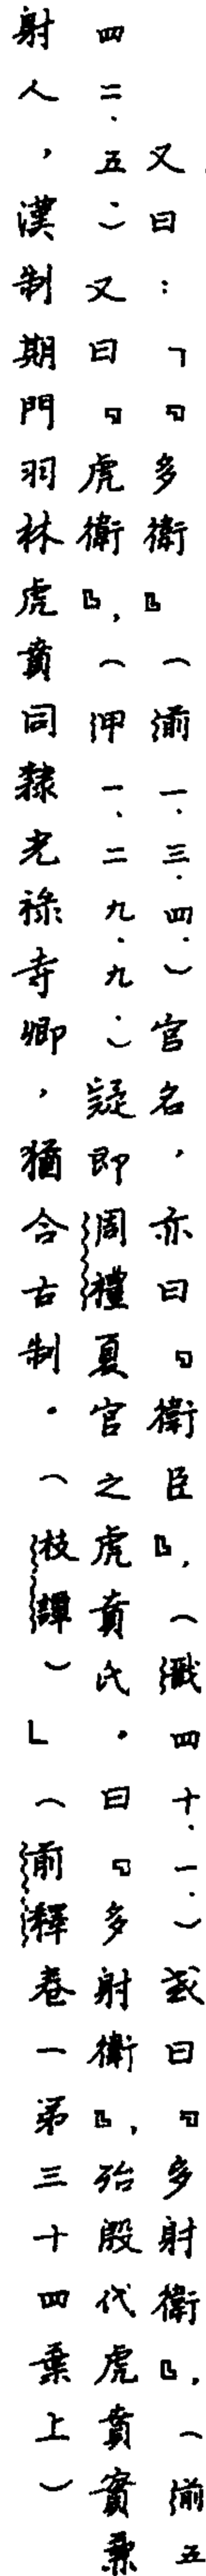 又曰：「『多衛』（湔一．三．四．）官名，亦曰『衛臣』，（戩四十．一．）或曰『多射衛』，（湔五
四二．五．）又曰『虎衛』，（押一、二九．九．）疑即周禮夏官之虎賁氏．曰『多射衛』，殆殷代虎賁實兼
射人，漢制期門羽林虎賁同隸光祿寺卿，猶合古制．（枝譚）」（前釋卷一第三十四葉上）